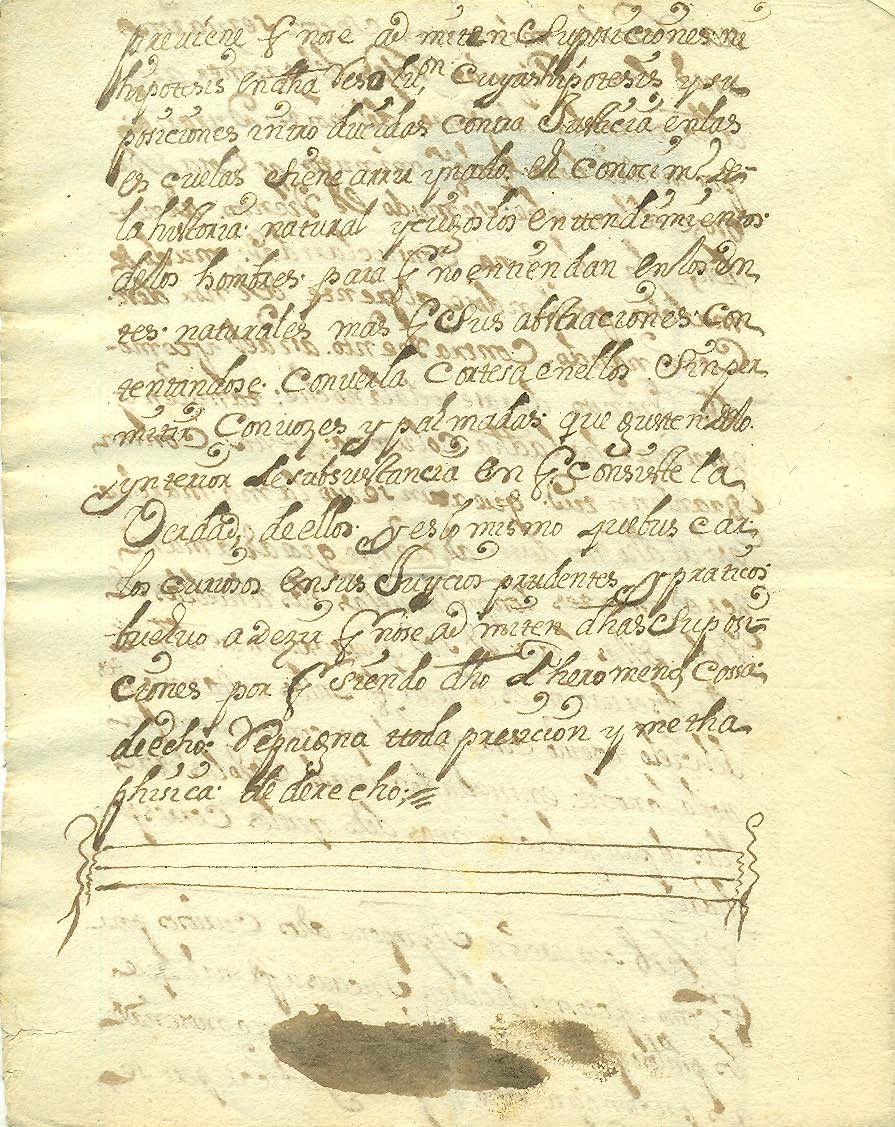 previene q̃ nose ad miten Suposiciones ni
hipotesis endha Resoluⁿ. Cuyas hipotesis y su
posiciones intro ducidas contra Justicia enlas
es cuelas tiene arru ynado el Conocimᵗᵒ de
la historia natural y los entendimientos
delos hombres para q̃ no entiendan enlos En
tes naturales mas q̃ Sus abstraciones Con
tentandose Converla Cortesa enellos Sin per
mitir Convozes y palmadas que gusten delo
ynterior desubsustancia en q̃ Consiste la
Verdad deellos y eslo mismo quebus car
los curiosos ensus Juycios prudentes y praticos
buelvo adezir q̃ nose ad miten dhas Suposi=
ciones por q̃ siendo dho dhero mend Cossa
deecho Repugna ttoda presicion y metha
phisica de derecho;=